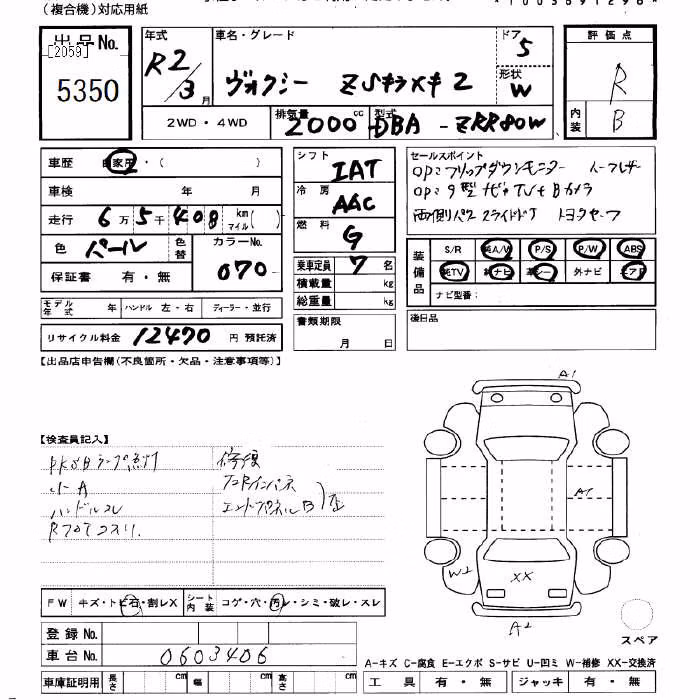 (複合機)対応用紙
出品No.
[2059]
5350
年式
R2/3月
車名・グレード
ヴォクシー ZSキラメキ2
ドア
5
形状
W
評価点
R
内装
B
2WD・4WD
排気量
2000cc
型式
DBA-ZRR80W
車歴 自家用・( )
車検 年 月
走行 6万5千408km マイル( )
色 パール
色替
カラーNo.
070
保証書 有・無
モデル年式 年 ハンドル 左・右 ディーラー・並行
リサイクル料金 12470円 預託済
シフト
IAT
冷房
AAC
燃料
G
乗車定員 7名
積載量 kg
総重量 kg
書類期限
月 日
セールスポイント
OPミフリップダウンモニター ハーフレザー
OPミ9型ナビTVtBカメラ
両側パワースライドドア トヨタセーフ
装備品
S/R 純A/W P/S P/W ABS
純TV 純ナビ 革シート 外ナビ エアB
ナビ型番:
後日品
【出品店申告欄(不良箇所・欠品・注意事項等)】
【検査員記入】
PKSBランプ点灯
小A
ハンドルスレ
修復
エンドパネルB
A1
A1
W2
XX
A2
スペア
FW キズ・トビ石・割レX
シート内装 コゲ・穴・汚レ・シミ・破レ・スレ
登録No.
車台No. 0603406
車庫証明用 長さ cm 幅 cm 高さ cm
A-キズ C-腐食 E-エクボ S-サビ U-凹ミ W-補修 XX-交換済
工具 有・無 ジャッキ 有・無